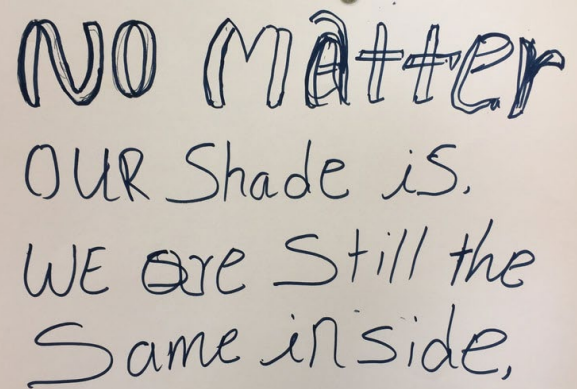 NO Matter
OUR Shade is.
WE are Still the
Same inside,